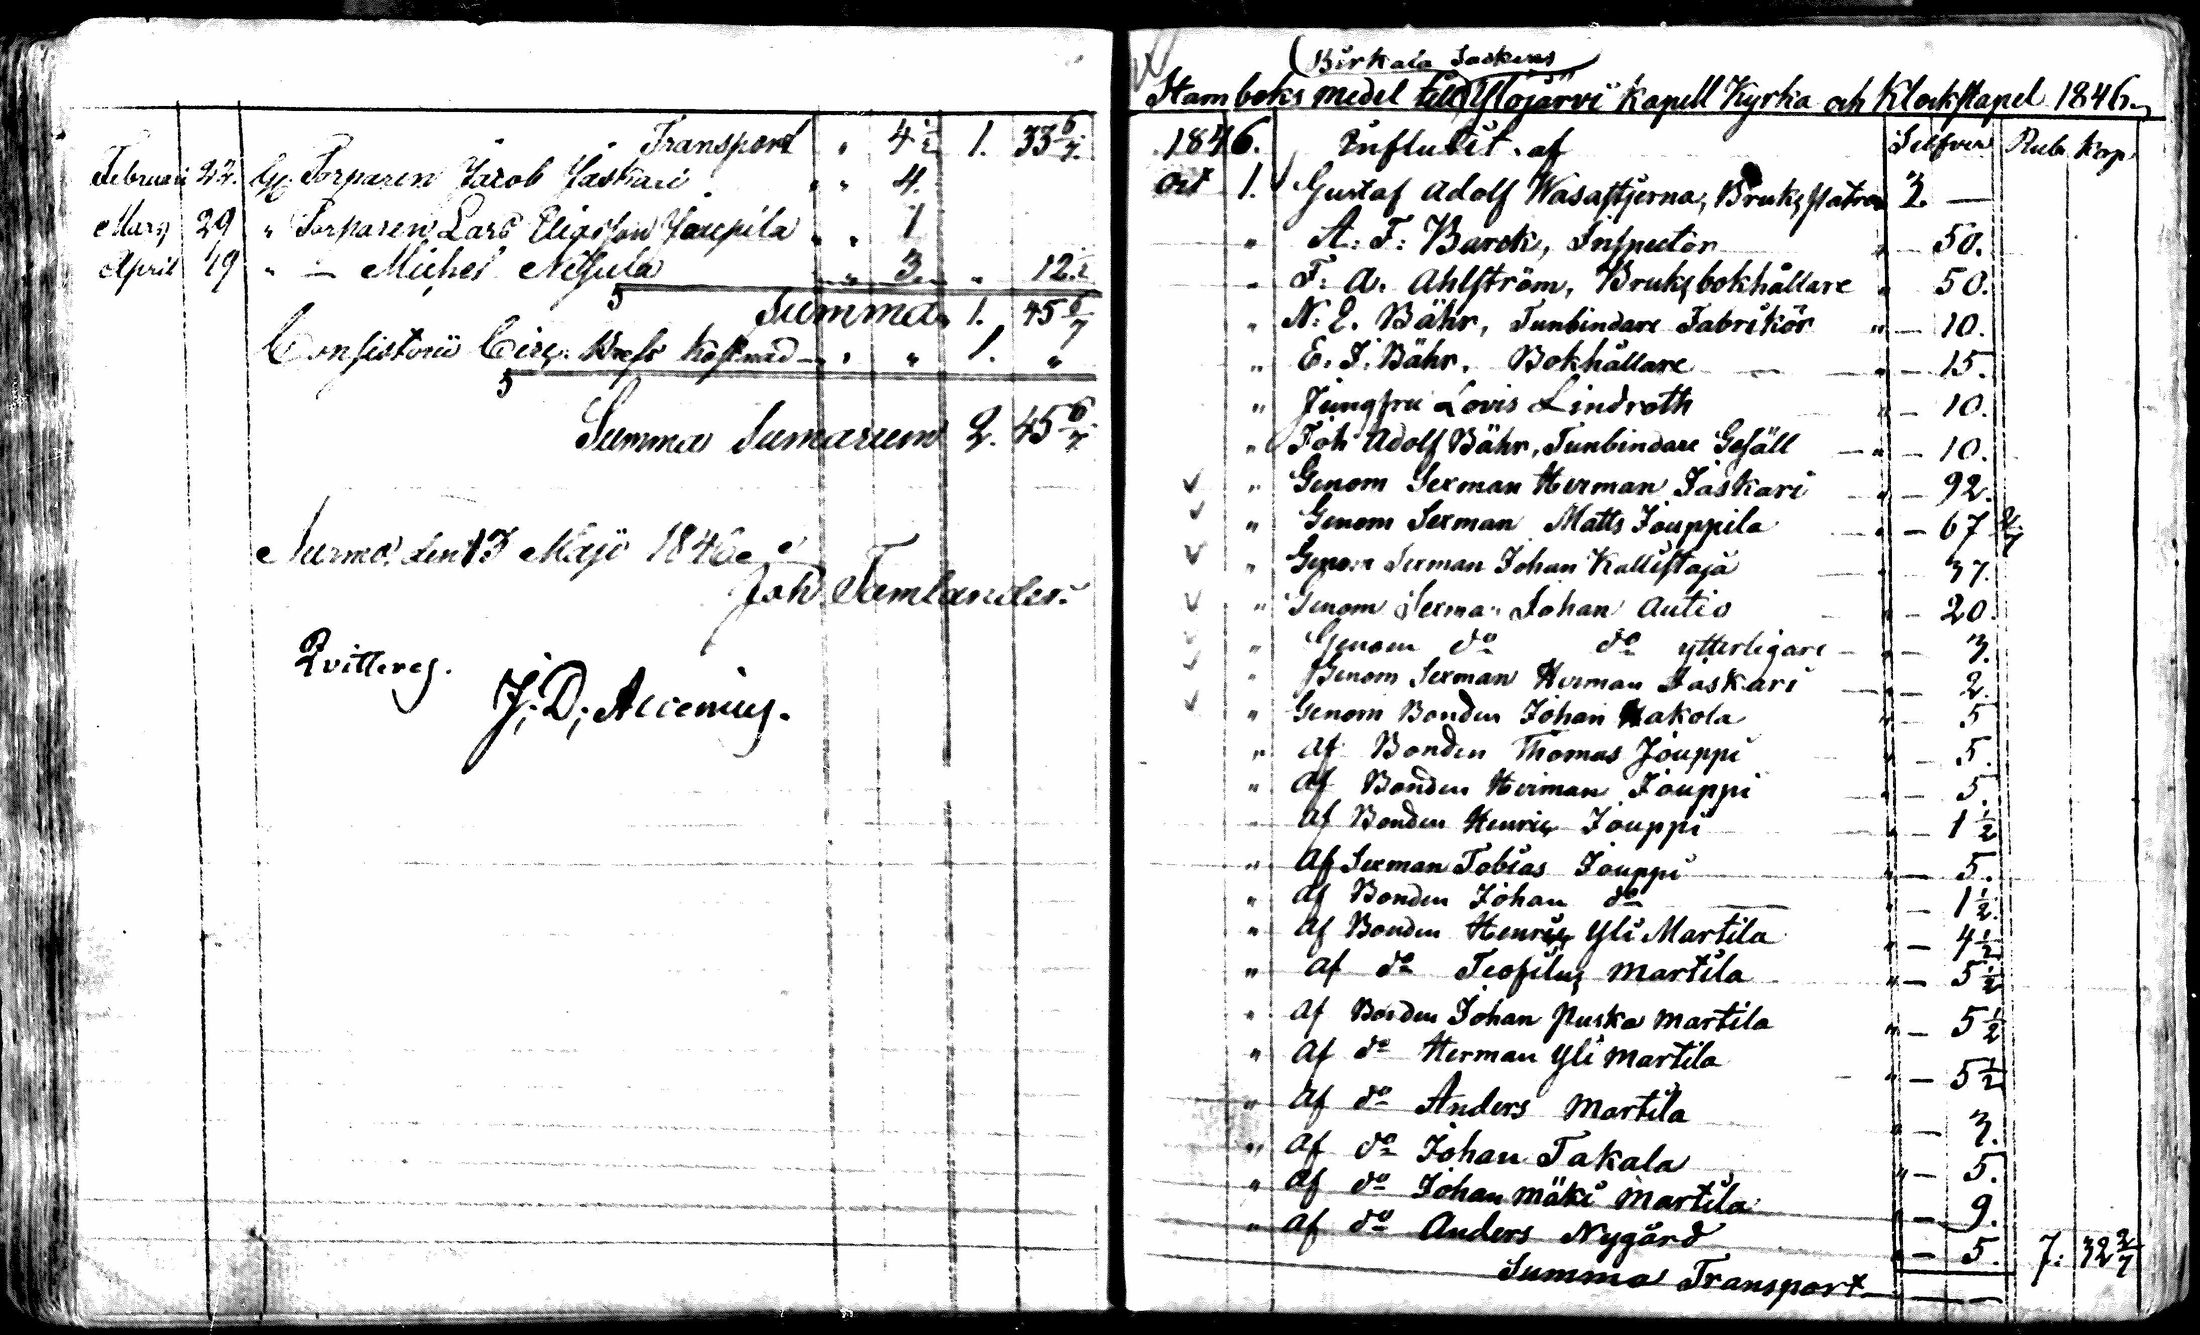 Transport " 4½ 1. 33 6/7.
Februari 22. Gm Torparen Jacob Jaskari " " 4.
Mars 29 " Torparen Lars Eliasson Jouppila " " 1
April 19 " — Michel " " 3 " 12½
Summa 1. 45 6/7
Consistorii Circ. Brefs kostnad " " 1. "
Summa Sumarum 2. 45 6/7
Nurmo den 13 Maji 1846
Joh Tamlander.
Qvitteras.
J. D. Alcenius.
(Birkala Sockens)
Stamboks medel till Ylöjärvi Kapell Kyrka och Klockstapel 1846.
1846. Influtit af Silfver Rub Kop
Oct 1. Gustaf Adolf Wasastjerna, Brukspatron 3. —
" A. F. Barck, Inspector " — 50.
" F. A. Ahlström, Bruksbokhållare " 50.
" N. E. Bähr, Tunbindare Fabrikör " — 10.
" E. J. Bähr. Bokhållare " — 15.
" Jungfru Lovis Lindroth " — 10.
" Joh Adolf Bähr, Tunbindare Gesäll — " — 10.
" Genom Sexman Herman Jaskari " — 92.
" Genom Sexman Matts Jouppila " — 67 2/7
" Genom Sexman Johan Kallistaja " 37.
" Genom Sexman Johan Autio " — 20.
" Genom do do ytterligare — " — 3.
" Genom Sexman Herman Jaskari — " — 2.
" Genom Bonden Johan Hakola " — 5
" Af Bonden Thomas Jouppi " — 5.
" Af Bonden Herman Jouppi " — 5.
" Af Bonden Henric Jouppi " — 1½
" Af Sexman Tobias Jouppi " — 5.
" Af Bonden Johan do " — 1½.
" Af Bonden Henric Yli Martila " — 4½
" Af do Teofilus Martila " — 5½
" Af Bonden Johan Puska Martila " — 5½
" Af do Herman Yli Martila " — 5½
" Af do Anders Martila " — 3.
" Af do Johan Takala " — 5.
" Af do Johan Mäki Martila " — 9.
" Af do Anders Nygård " — 5.
Summa Transport — 7. 32 2/7